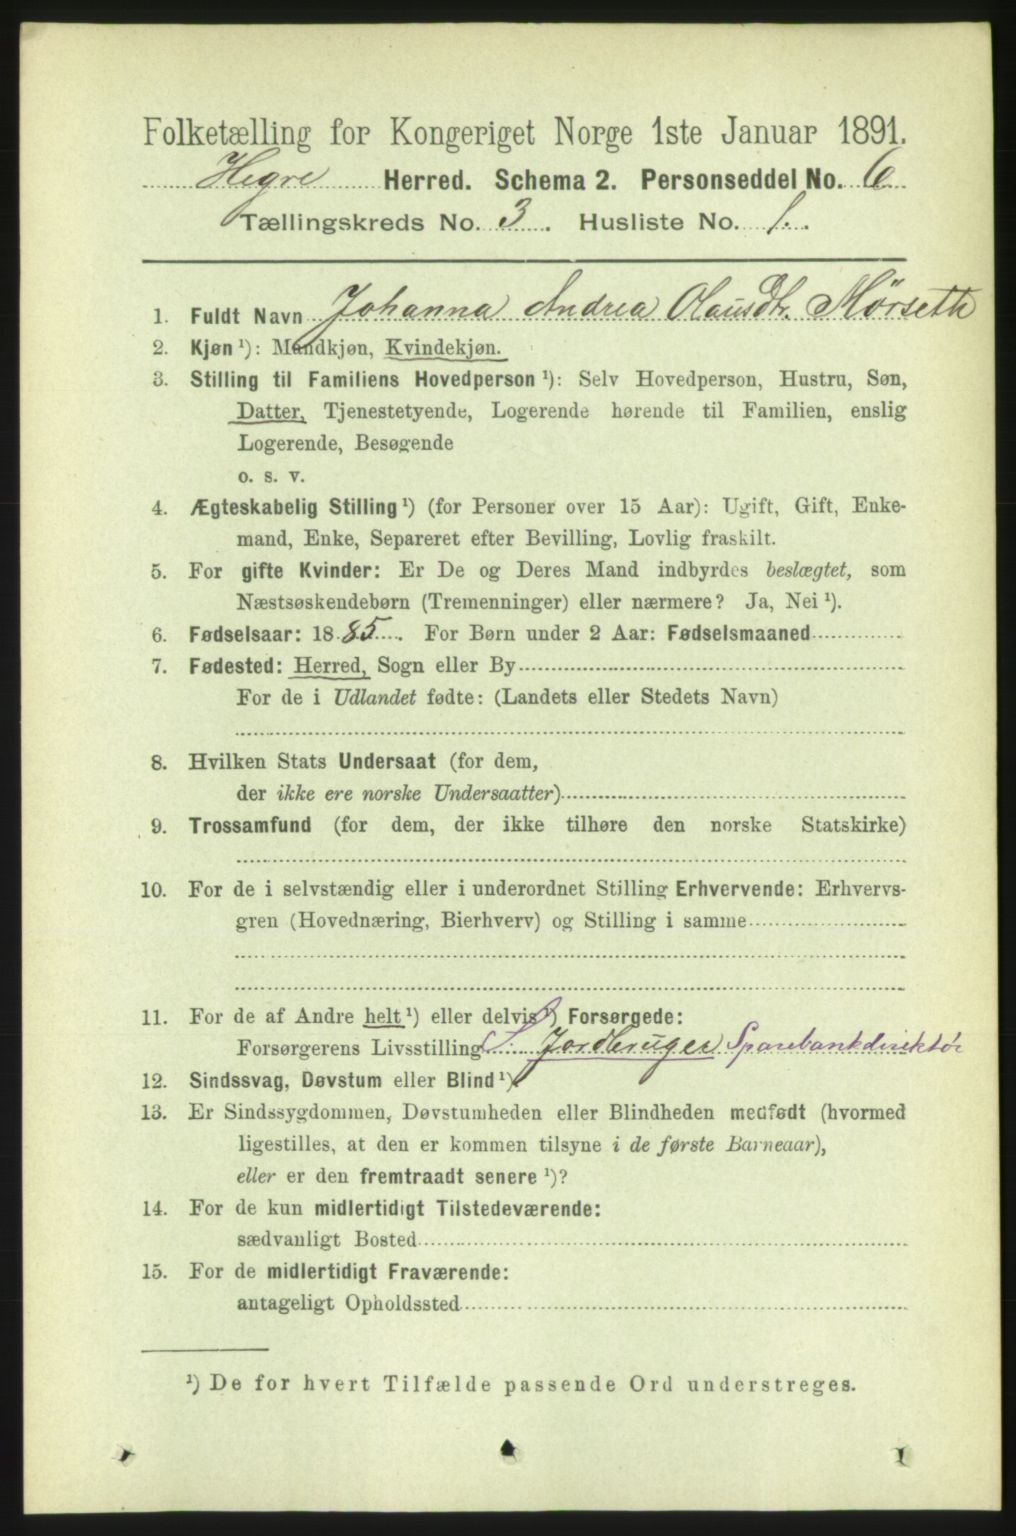 Folketælling for Kongeriget Norge 1ste Januar 1891.
Hegre Herred. Schema 2. Personseddel No. 6
Tællingskreds No. 3. Husliste No. 1.
1. Fuldt Navn Johanna Andrea Olausdtr. Mørseth
2. Kjøn ¹): Mandkjøn, Kvindekjøn.
3. Stilling til Familiens Hovedperson ¹): Selv Hovedperson, Hustru, Søn,
Datter, Tjenestetyende, Logerende hørende til Familien, enslig
Logerende, Besøgende
o. s. v.
4. Ægteskabelig Stilling ¹) (for Personer over 15 Aar): Ugift, Gift, Enke-
mand, Enke, Separeret efter Bevilling, Lovlig fraskilt.
5. For gifte Kvinder: Er De og Deres Mand indbyrdes beslægtet, som
Næstsøskendebørn (Tremenninger) eller nærmere? Ja, Nei ¹).
6. Fødselsaar: 1885. For Børn under 2 Aar: Fødselsmaaned
7. Fødested: Herred, Sogn eller By
For de i Udlandet fødte: (Landets eller Stedets Navn)
8. Hvilken Stats Undersaat (for dem,
der ikke ere norske Undersaatter)
9. Trossamfund (for dem, der ikke tilhøre den norske Statskirke)
10. For de i selvstændig eller i underordnet Stilling Erhvervende: Erhvervs-
gren (Hovednæring, Bierhverv) og Stilling i samme
11. For de af Andre helt ¹) eller delvis ¹) Forsørgede:
Forsørgerens Livsstilling S. Jordbruger Sparebankdirektør
12. Sindssvag, Døvstum eller Blind ¹)
13. Er Sindssygdommen, Døvstumheden eller Blindheden medfødt (hvormed
ligestilles, at den er kommen tilsyne i de første Barneaar),
eller er den fremtraadt senere ¹)?
14. For de kun midlertidigt Tilstedeværende:
sædvanligt Bosted
15. For de midlertidigt Fraværende:
antageligt Opholdssted
¹) De for hvert Tilfælde passende Ord understreges.